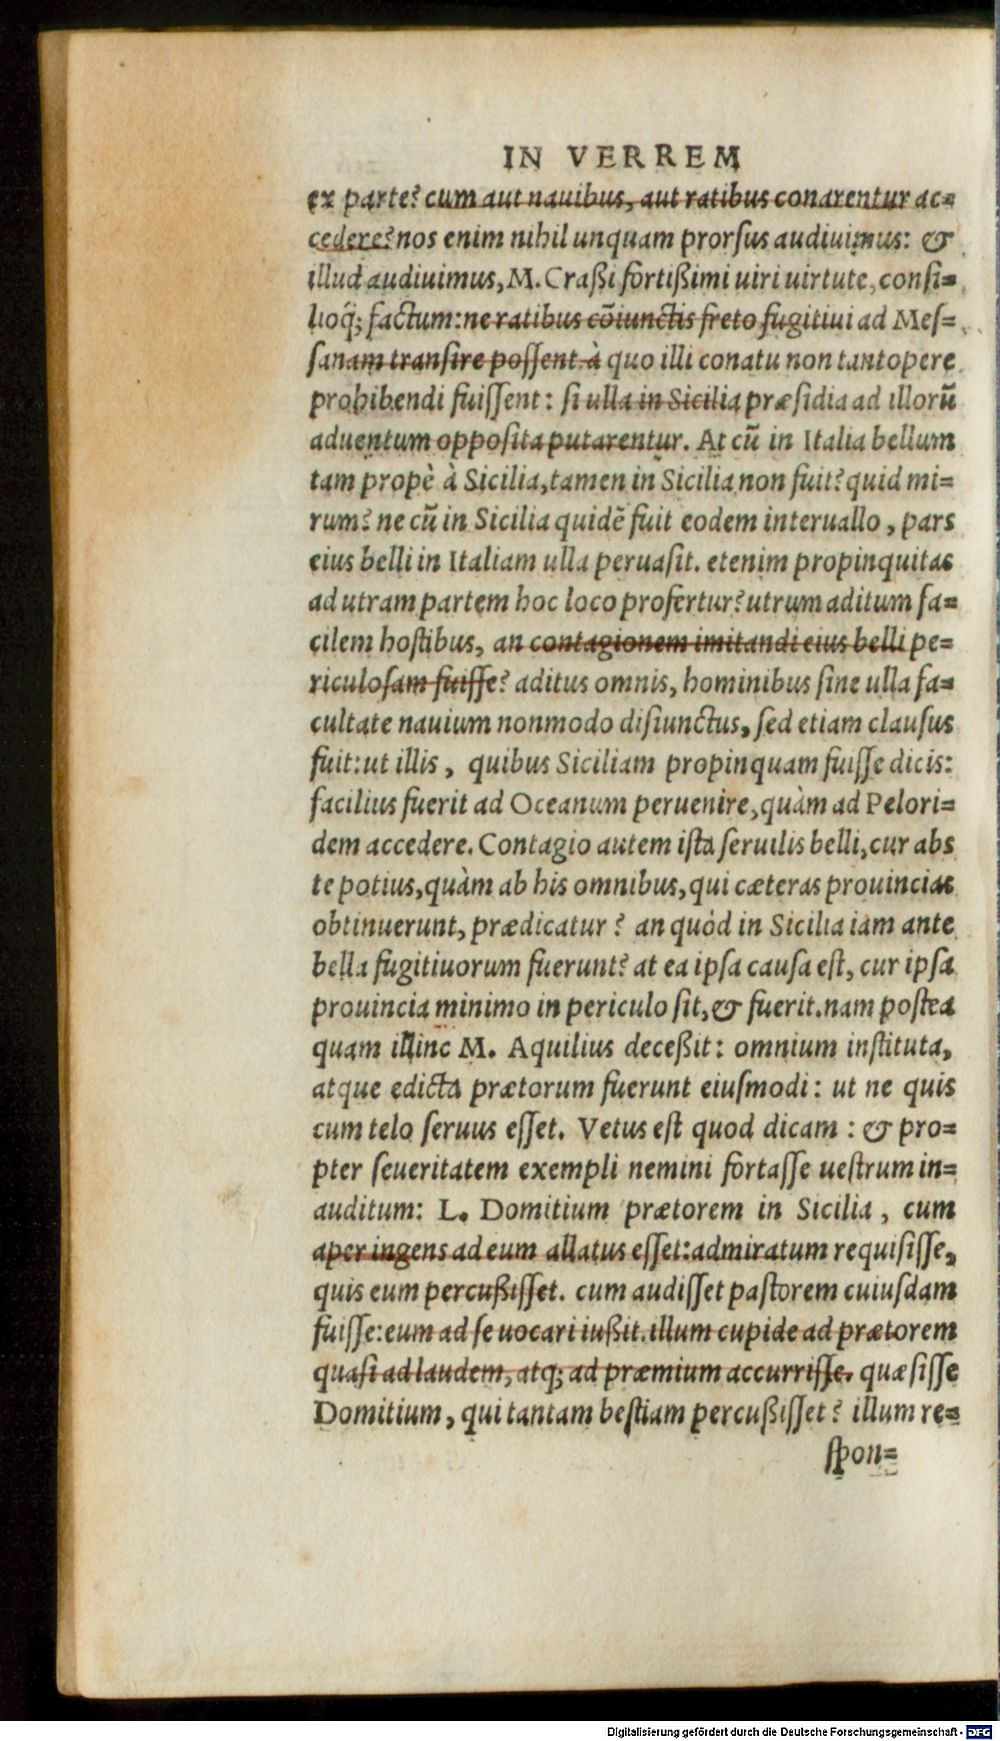 IN VERREM
ex parte? cum aut nauibus, aut ratibus conarentur ac=
cedere? nos enim nihil unquam prorſus audiuimus: &
illud audiuimus, M. Craßi fortißimi uiri uirtute, conſi=
lioq́; factum: ne ratibus cõiunctis freto fugitiui ad Meſ=
ſanam tranſire poſſent. à quo illi conatu non tantopere
prohibendi fuiſſent: ſi ulla in Sicilia præſidia ad illorũ
aduentum oppoſita putarentur. At cũ in Italia bellum
tam propè à Sicilia, tamen in Sicilia non fuit? quid mi=
rum? ne cũ in Sicilia quidẽ fuit eodem interuallo, pars
eius belli in Italiam ulla peruaſit. etenim propinquitas
ad utram partem hoc loco profertur? utrum aditum fa=
cilem hoſtibus, an contagionem imitandi eius belli pe=
riculoſam fuiſſe? aditus omnis, hominibus ſine ulla fa=
cultate nauium nonmodo diſiunctus, ſed etiam clauſus
fuit: ut illis, quibus Siciliam propinquam fuiſſe dicis:
facilius fuerit ad Oceanum peruenire, quàm ad Pelori=
dem accedere. Contagio autem iſta ſeruilis belli, cur abs
te potius, quàm ab his omnibus, qui cæteras prouincias
obtinuerunt, prædicatur? an quòd in Sicilia iam ante
bella fugitiuorum fuerunt? at ea ipſa cauſa eſt, cur ipſa
prouincia minimo in periculo ſit, & fuerit. nam poſtea
quam illinc M. Aquilius deceßit: omnium inſtituta,
atque edicta prætorum fuerunt eiuſmodi: ut ne quis
cum telo ſeruus eſſet. Vetus eſt quod dicam: & pro=
pter ſeueritatem exempli nemini fortaſſe ueſtrum in=
auditum: L. Domitium prætorem in Sicilia, cum
aper ingens ad eum allatus eſſet: admiratum requiſiſſe,
quis eum percußiſſet. cum audiſſet paſtorem cuiuſdam
fuiſſe: eum ad ſe uocari iußit. illum cupide ad prætorem
quaſi ad laudem, atq; ad præmium accurriſſe. quæſiſſe
Domitium, qui tantam beſtiam percußiſſet? illum re=
ſpon=
Digitalisierung gefördert durch die Deutsche Forschungsgemeinschaft - DFG